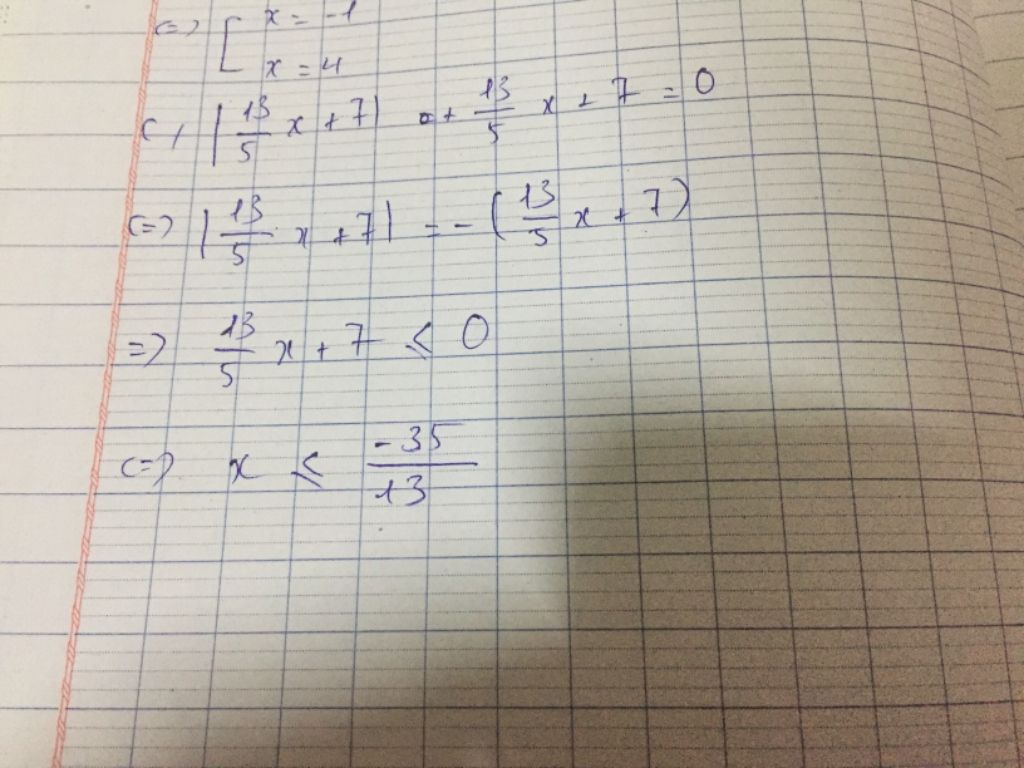 <=> [ x = -1
x = 4
c, |13/5 x + 7| + 13/5 x + 7 = 0
<=> |13/5 x + 7| = -(13/5 x + 7)
=> 13/5 x + 7 ≤ 0
<=> x ≤ -35/13